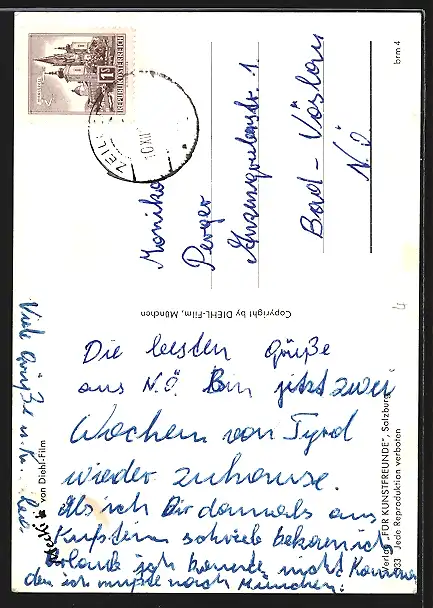 REPUBLIK ÖSTERREICH
1 S
ZELL
XII
Monika
Perger
Anzengruberstr. 1.
Bad-Vöslau
N.Ö.
brm 4
Copyright by DIEHL-Film, München
4
Die besten Grüße
aus N.Ö. Bin jetzt zwei
Wochen von Tyrol
wieder zuhause.
Als ich Dir damals aus
Kufstein schrieb bekam ich
Urlaub ich konnte nicht kommen
den ich mußte nach München.
Viele Grüße
Mecki von Diehl-Film
Verlag „FÜR KUNSTFREUNDE“, Salzburg
Jede Reproduktion verboten